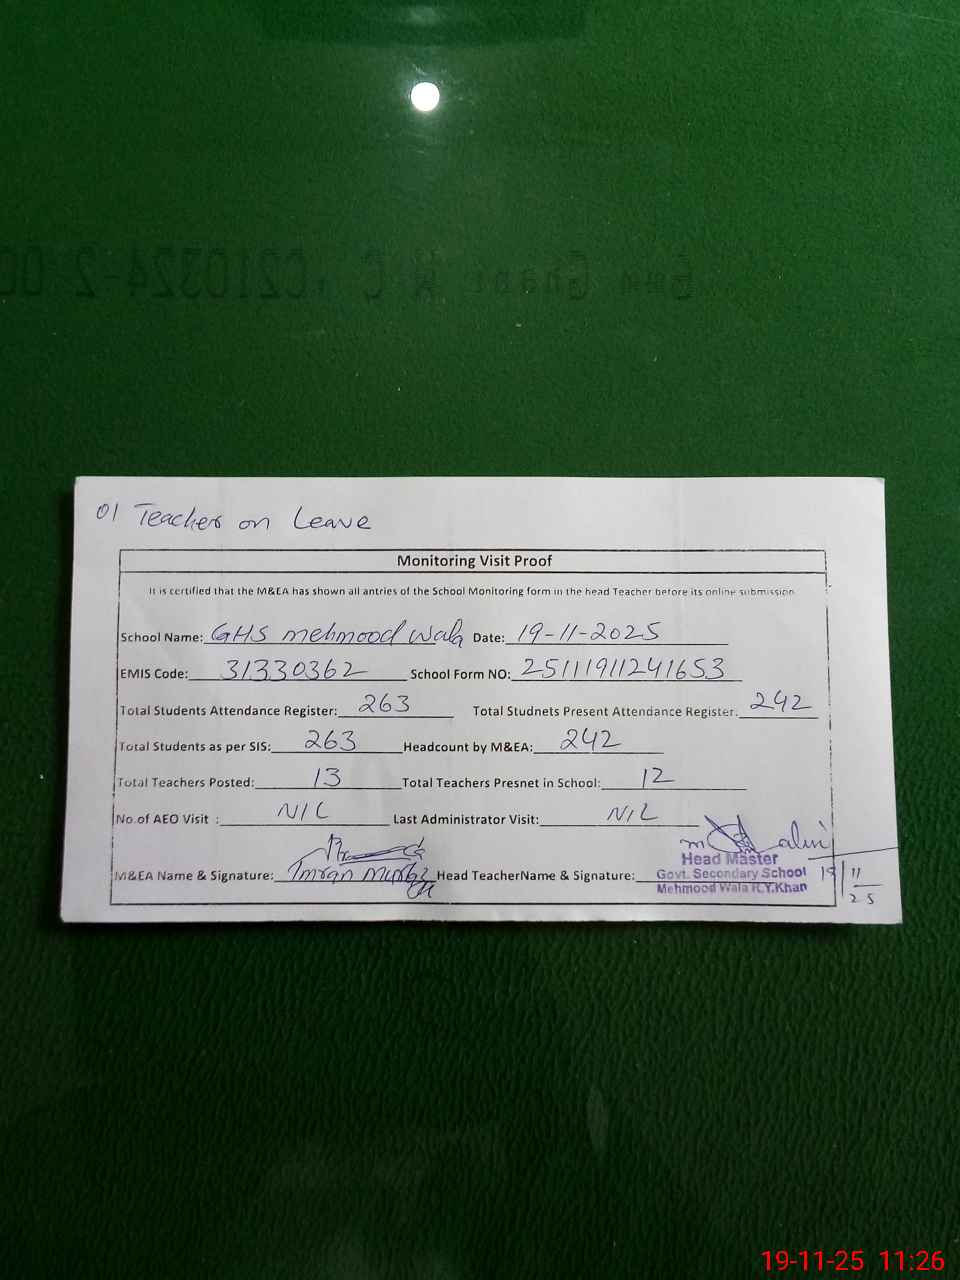 01 Teacher on Leave
Monitoring Visit Proof
It is certified that the M&EA has shown all antries of the School Monitoring form in the head Teacher before its online submission
School Name: GHS mehmood wala Date: 19-11-2025
EMIS Code: 31330362 School Form NO: 25111911241653
Total Students Attendance Register: 263 Total Studnets Present Attendance Register: 242
Total Students as per SIS: 263 Headcount by M&EA: 242
Total Teachers Posted: 13 Total Teachers Presnet in School: 12
No.of AEO Visit : NIL Last Administrator Visit: NIL
M&EA Name & Signature: Imran Head TeacherName & Signature:
Head Master
Govt. Secondary School
Mehmood Wala R.Y.Khan
19/11/25
19-11-25 11:26